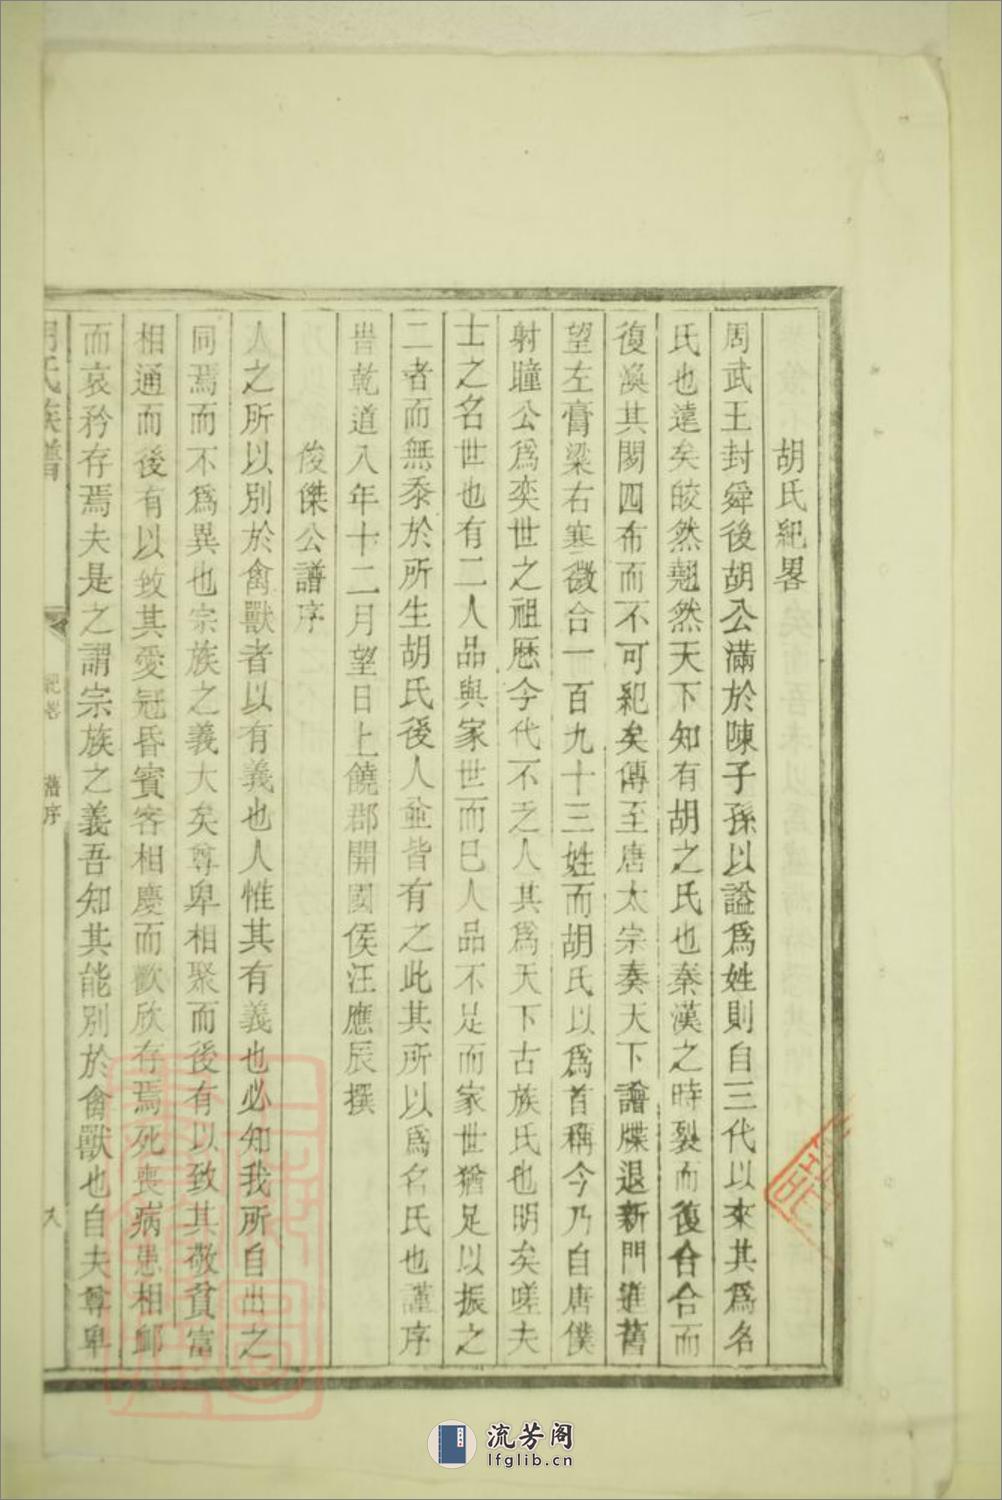 胡氏紀畧
周武王封舜後胡公滿於陳子孫以謚爲姓則自三代以來其爲名
氏也遠矣皎然翹然天下知有胡之氏也秦漢之時裂而復合合而
復渙其閥四布而不可紀矣傳至唐太宗奏天下譜牒退新門進舊
望左膏梁右寒微合一百九十三姓而胡氏以爲首稱今乃自唐僕
射瞳公爲奕世之祖歷今代不乏人其爲天下古族氏也明矣嗟夫
士之名世也有二人品與家世而已人品不足而家世猶足以振之
二者而無忝於所生胡氏後人並皆有之此其所以爲名氏也謹序
旹乾道八年十二月望日上饒郡開國侯汪應辰撰
俊傑公譜序
人之所以別於禽獸者以有義也人惟其有義也必知我所自出之
同焉而不爲異也宗族之義大矣尊卑相聚而後有以致其敬貧富
相通而後有以致其愛冠昏賓客相慶而歡欣存焉死喪病患相卹
而哀矜存焉夫是之謂宗族之義吾知其能別於禽獸也自夫尊卑
胡氏族譜
紀畧
舊序
流芳阁
lfglib.cn